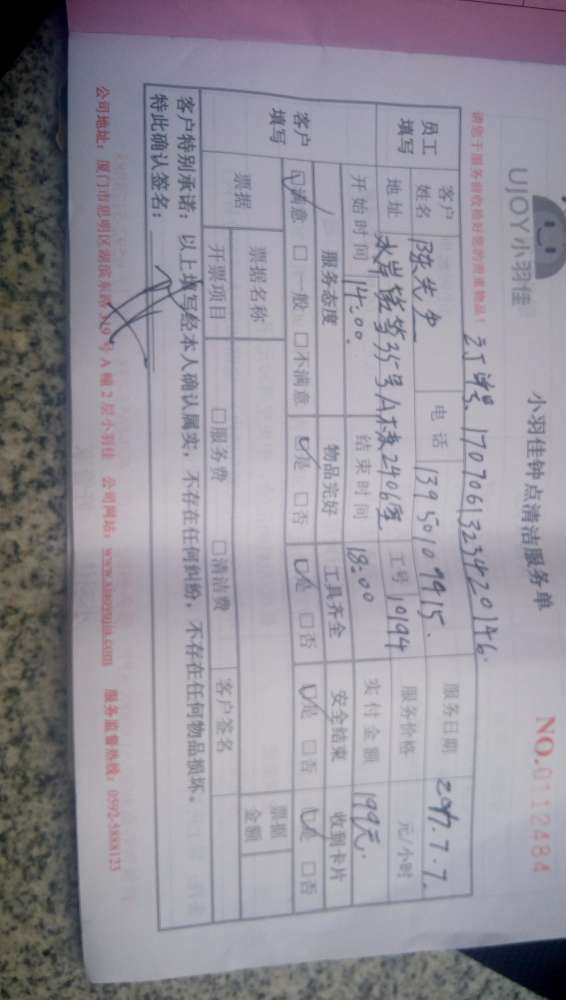 UJOY小羽佳
小羽佳钟点清洁服务单
NO.0112484
请您于服务前收拾好您的贵重物品!
订单号:17070613234220146.
员工填写
客户姓名 陈先生 电话 13950109915. 服务日期 2017.7.7.
地址 水岸 35号A栋2406室 工号 10194 服务价格 元/小时
开始时间 14:00 结束时间 18:00 实付金额 199元.
客户填写
服务态度 物品完好 工具齐全 安全结束 收到卡片
☑满意 □一般 □不满意 ☑是 □否 ☑是 □否 ☑是 □否 ☑是 □否
票据 票据名称 票据金额
开票项目 □服务费 □清洁费 客户签名
客户特别承诺:以上填写经本人确认属实,不存在任何纠纷,不存在任何物品损坏。
特此确认签名:
公司地址:厦门市思明区湖滨东路319号A幢2层小羽佳 公司网站:www.xiaoyujia.com 服务监督热线:0592-5888123